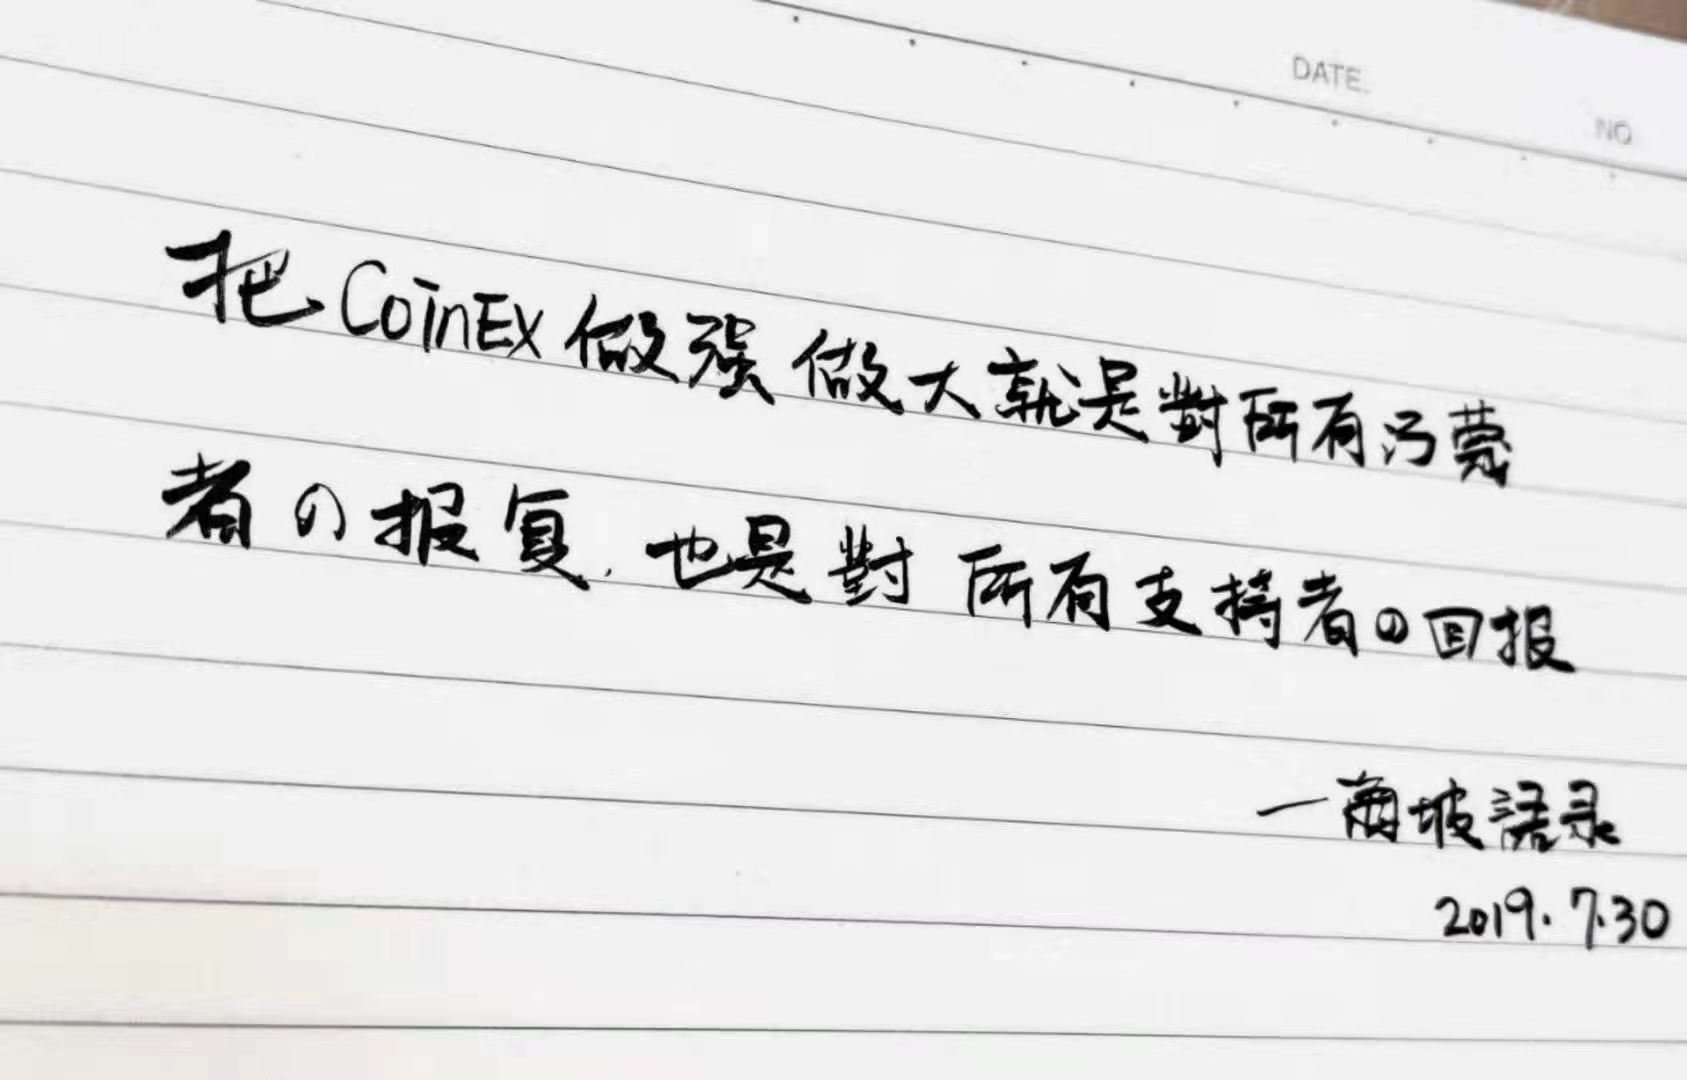 DATE.
NO
把CoinEx做强做大就是對所有污蔑
者の报复.也是對所有支持者の回报
一爾坡語录
2019.7.30